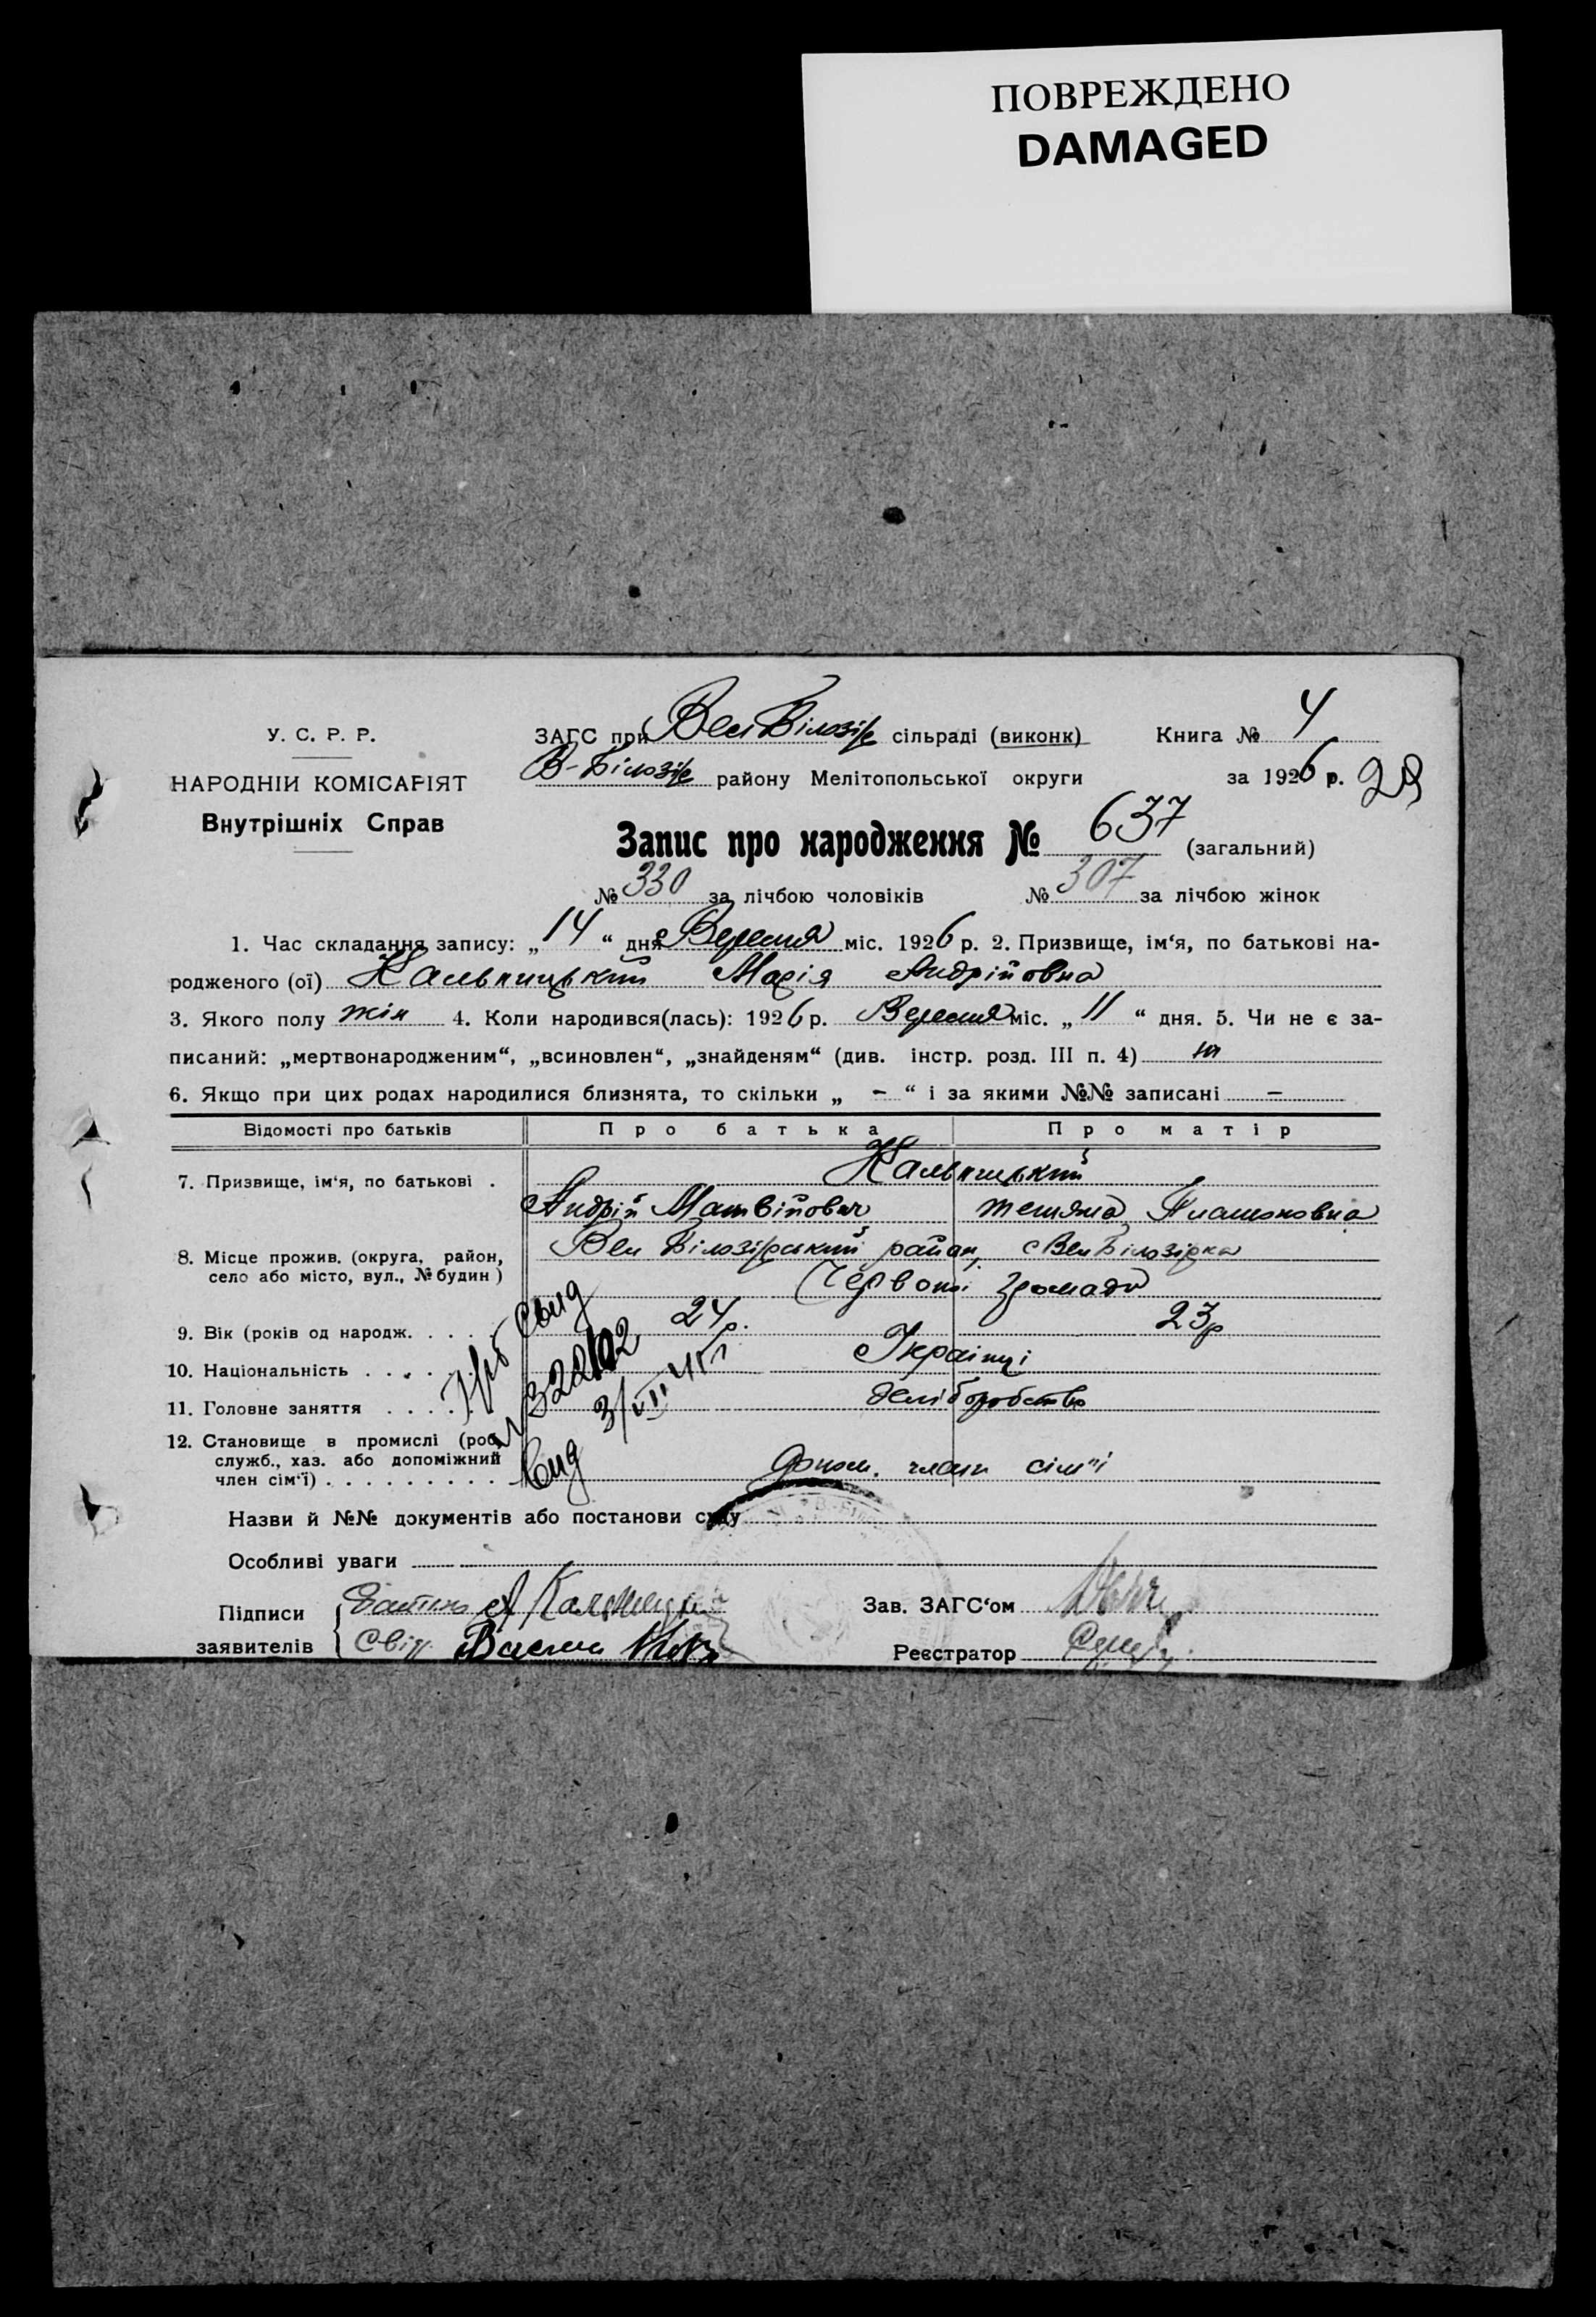 ПОВРЕЖДЕНО
DAMAGED
У. С. Р. Р.
НАРОДНІЙ КОМІСАРІЯТ
Внутрішніх Справ
ЗАГС при Вел Білозі/р сільраді (виконк) Книга № 4
В-Білозі/р району Мелітопольської округи за 1926 р. 29
Запис про народження № 637 (загальний)
№ 330 за лічбою чоловіків № 307 за лічбою жінок
1. Час складання запису: „14“ дня Вересня міс. 1926 р. 2. Призвище, ім‘я, по батькові на-
родженого (ої) Марія Андрійовна
3. Якого полу жін 4. Коли народився(лась): 1926 р. Вересня міс. „11“ дня. 5. Чи не є за-
писаний: „мертвонародженим“, „всиновлен“, „знайденям“ (див. інстр. розд. III п. 4) ні
6. Якщо при цих родах народилися близнята, то скільки „ – “ і за якими №№ записані –
Відомості про батьків Про батька Про матір
7. Призвище, ім‘я, по батькові .
Андрій Матвійович Тетяна Платоновна
8. Місце прожив. (округа, район, село або місто, вул., № будин) Вел Білозірський район, с Вел Білозірка
Червоної громади
9. Вік (років од народж. . . . . 24 р. 23 р
10. Національність . . . . . Українці
11. Головне заняття . . . . хліборобство
12. Становище в промислі (роб., служб., хаз. або допоміжний член сім‘ї) . . . . . . . . . допом. член сім"ї
Назви й №№ документів або постанови суду
Особливі уваги
Підписи заявителів
Батько А
Свід.
Зав. ЗАГС‘ом
Реєстратор